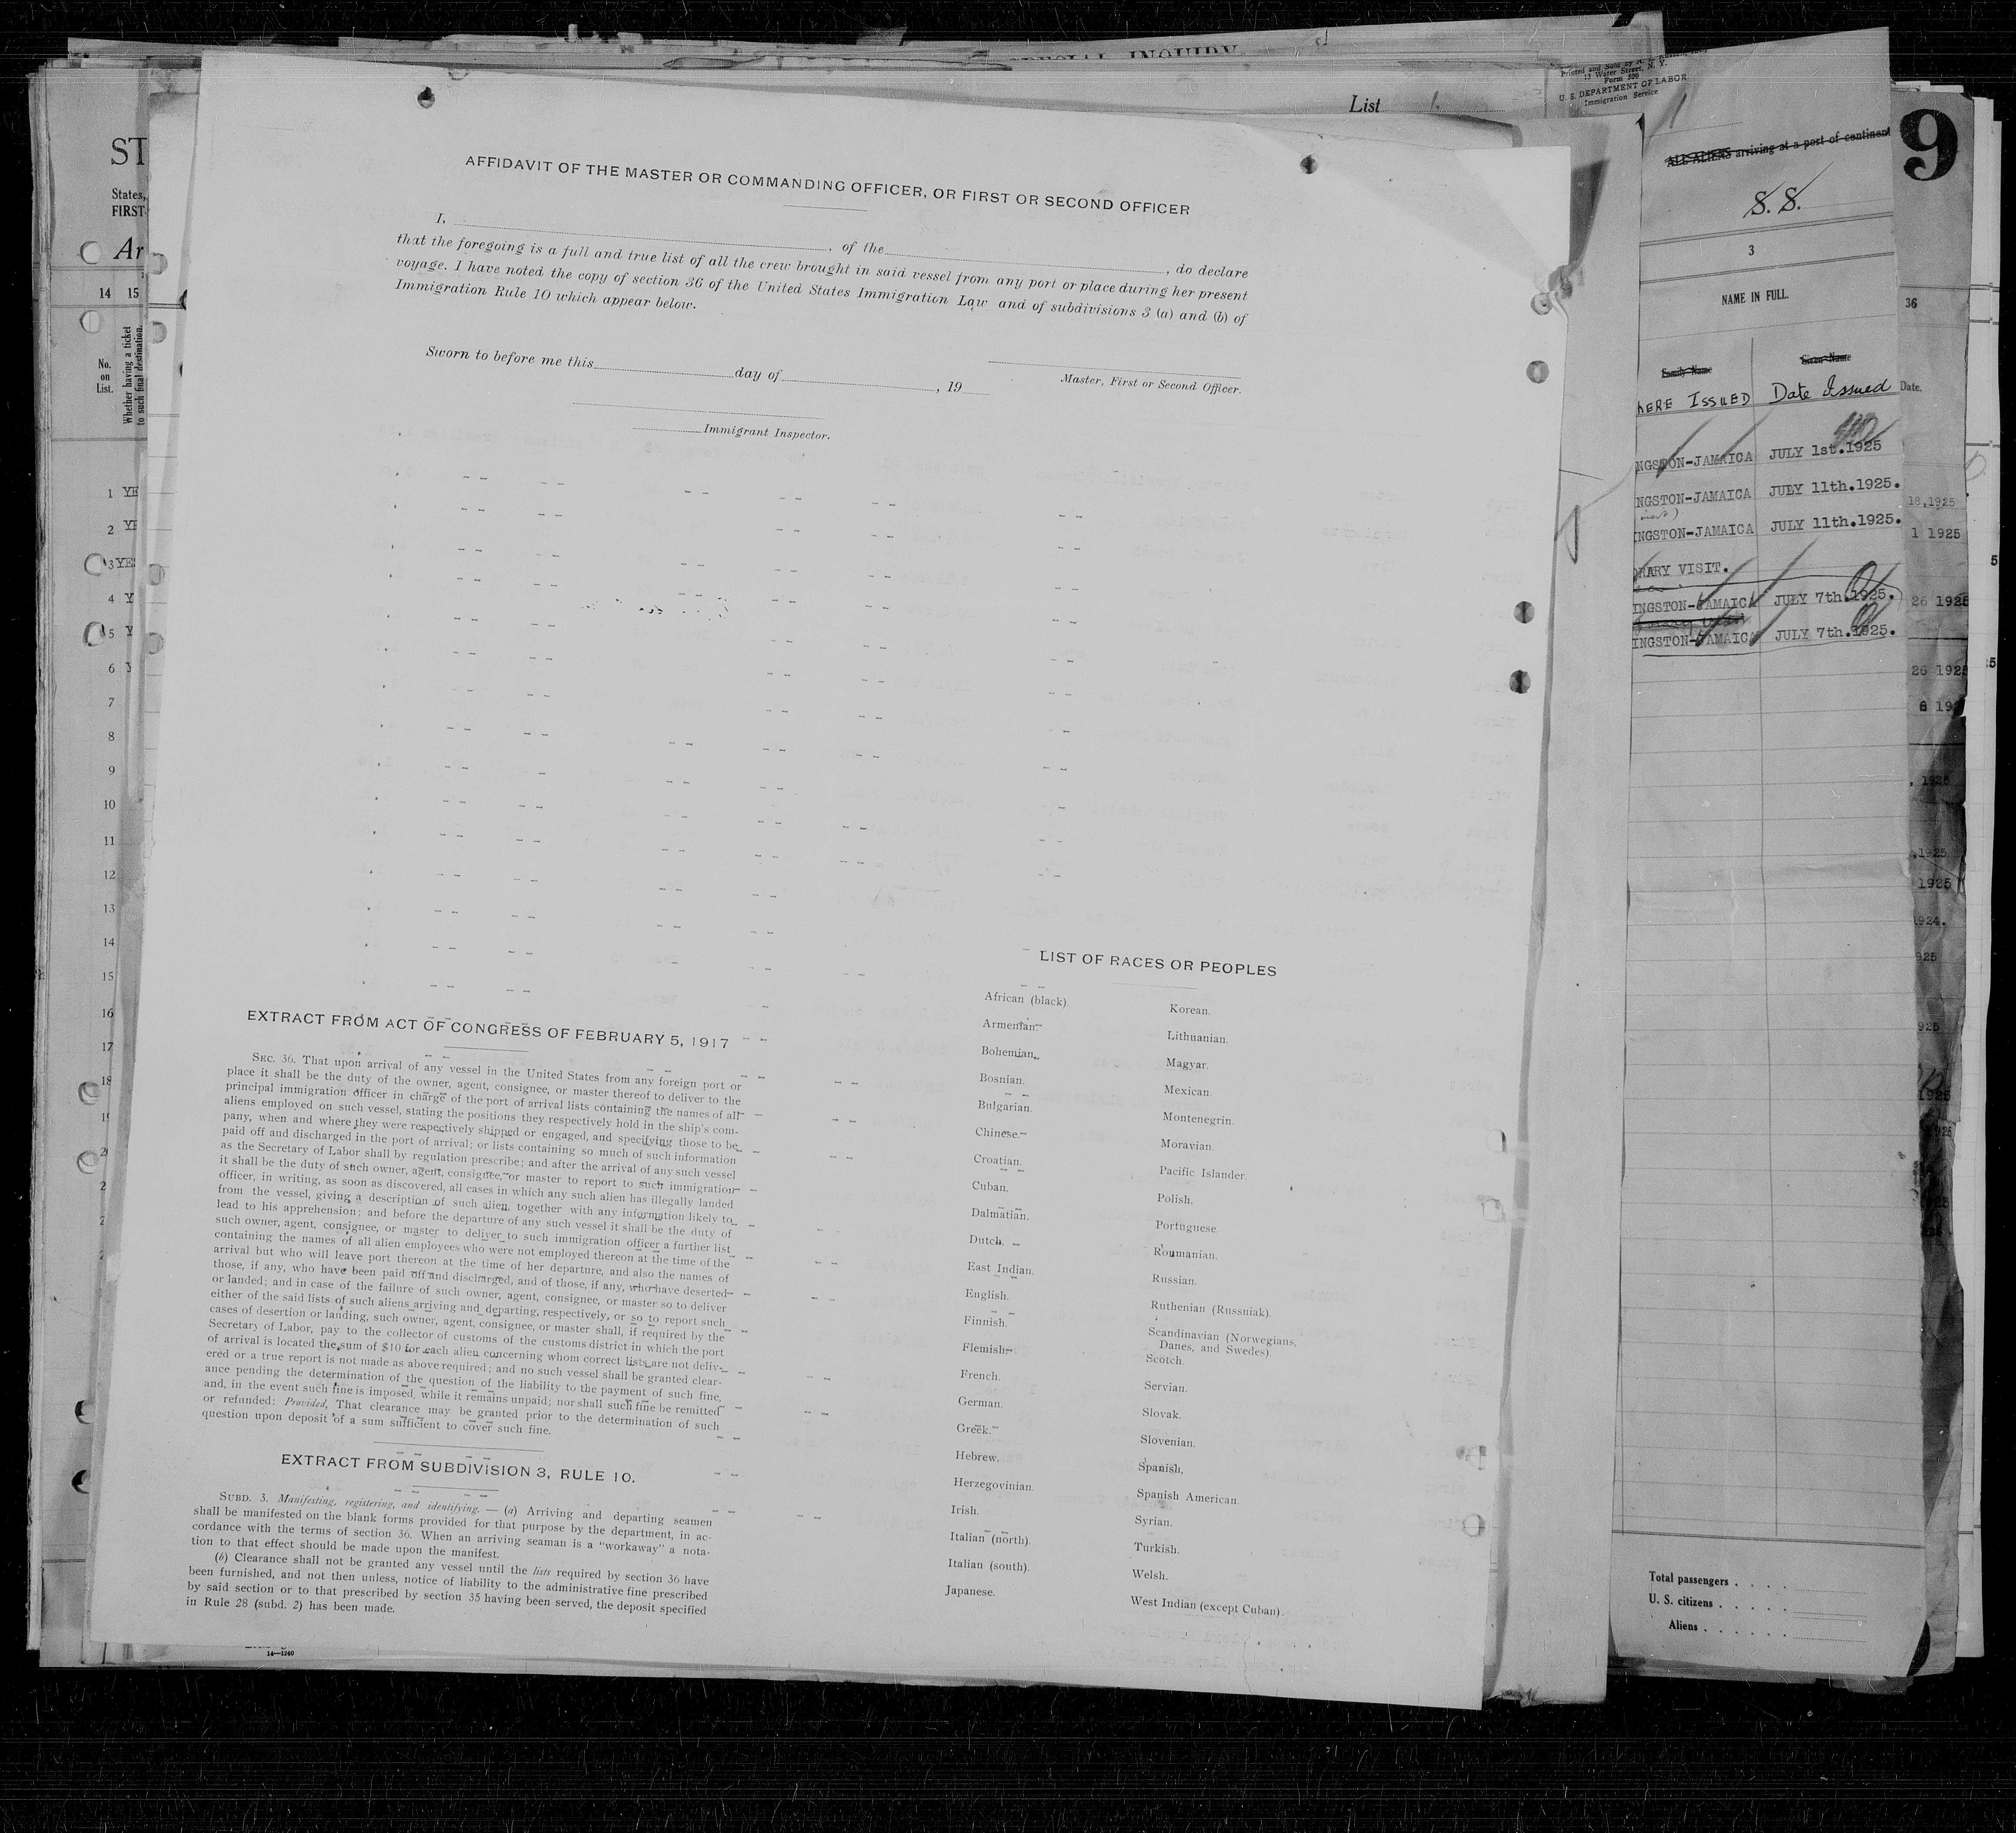 SPECIAL INQUIRY
List 1
AFFIDAVIT OF THE MASTER OR COMMANDING OFFICER, OR FIRST OR SECOND OFFICER
I, , of the , do declare
that the foregoing is a full and true list of all the crew brought in said vessel from any port or place during her present
voyage. I have noted the copy of section 36 of the United States Immigration Law and of subdivisions 3 (a) and (b) of
Immigration Rule 10 which appear below.
Sworn to before me this day of , 19
Master, First or Second Officer.
Immigrant Inspector.
EXTRACT FROM ACT OF CONGRESS OF FEBRUARY 5, 1917
SEC. 36. That upon arrival of any vessel in the United States from any foreign port or
place it shall be the duty of the owner, agent, consignee, or master thereof to deliver to the
principal immigration officer in charge of the port of arrival lists containing the names of all
aliens employed on such vessel, stating the positions they respectively hold in the ship's com-
pany, when and where they were respectively shipped or engaged, and specifying those to be
paid off and discharged in the port of arrival; or lists containing so much of such information
as the Secretary of Labor shall by regulation prescribe; and after the arrival of any such vessel
it shall be the duty of such owner, agent, consignee, or master to report to such immigration
officer, in writing, as soon as discovered, all cases in which any such alien has illegally landed
from the vessel, giving a description of such alien, together with any information likely to
lead to his apprehension; and before the departure of any such vessel it shall be the duty of
such owner, agent, consignee, or master to deliver to such immigration officer a further list
containing the names of all alien employees who were not employed thereon at the time of the
arrival but who will leave port thereon at the time of her departure, and also the names of
those, if any, who have been paid off and discharged, and of those, if any, who have deserted
or landed; and in case of the failure of such owner, agent, consignee, or master so to deliver
either of the said lists of such aliens arriving and departing, respectively, or so to report such
cases of desertion or landing, such owner, agent, consignee, or master shall, if required by the
Secretary of Labor, pay to the collector of customs of the customs district in which the port
of arrival is located the sum of $10 for each alien concerning whom correct lists are not deliv-
ered or a true report is not made as above required; and no such vessel shall be granted clear-
ance pending the determination of the question of the liability to the payment of such fine,
and, in the event such fine is imposed, while it remains unpaid; nor shall such fine be remitted
or refunded: Provided, That clearance may be granted prior to the determination of such
question upon deposit of a sum sufficient to cover such fine.
EXTRACT FROM SUBDIVISION 3, RULE 10.
SUBD. 3. Manifesting, registering, and identifying. — (a) Arriving and departing seamen
shall be manifested on the blank forms provided for that purpose by the department, in ac-
cordance with the terms of section 36. When an arriving seaman is a "workaway" a nota-
tion to that effect should be made upon the manifest.
(b) Clearance shall not be granted any vessel until the lists required by section 36 have
been furnished, and not then unless, notice of liability to the administrative fine prescribed
by said section or to that prescribed by section 35 having been served, the deposit specified
in Rule 28 (subd. 2) has been made.
LIST OF RACES OR PEOPLES
African (black).
Armenian.
Bohemian.
Bosnian.
Bulgarian.
Chinese.
Croatian.
Cuban.
Dalmatian.
Dutch.
East Indian.
English.
Finnish.
Flemish.
French.
German.
Greek.
Hebrew.
Herzegovinian.
Irish.
Italian (north).
Italian (south).
Japanese.
Korean.
Lithuanian.
Magyar.
Mexican.
Montenegrin.
Moravian.
Pacific Islander.
Polish.
Portuguese.
Roumanian.
Russian.
Ruthenian (Russniak).
Scandinavian (Norwegians,
Danes, and Swedes).
Scotch.
Servian.
Slovak.
Slovenian.
Spanish.
Spanish American.
Syrian.
Turkish.
Welsh.
West Indian (except Cuban).
ST
States,
FIRST-
Ar
14 15
No.
on
List.
Whether having a ticket
to such final destination.
1 YE
2 YE
3 YE
4 Y
5 Y
6 Y
7
8
9
10
11
12
13
14
15
16
17
18
14—1240
13 Water Street, N. Y.
Form 500
U. S. DEPARTMENT OF LABOR
Immigration Service
ALL ALIENS arriving at a port of continent
S. S.
3
NAME IN FULL.
Family Name Given Name
HERE ISSUED Date Issued
NGSTON-JAMAICA JULY 1st.1925
NGSTON-JAMAICA JULY 11th.1925.
INGSTON-JAMAICA JULY 11th.1925.
ORARY VISIT.
INGSTON-JAMAICA JULY 7th.1925.
INGSTON-JAMAICA JULY 7th.1925.
Total passengers
U. S. citizens
Aliens
9
36
Date.
18,1925
1 1925
26 1925
26 1925
6 19
, 1925
,1925
1925
1924.
925
925
1925